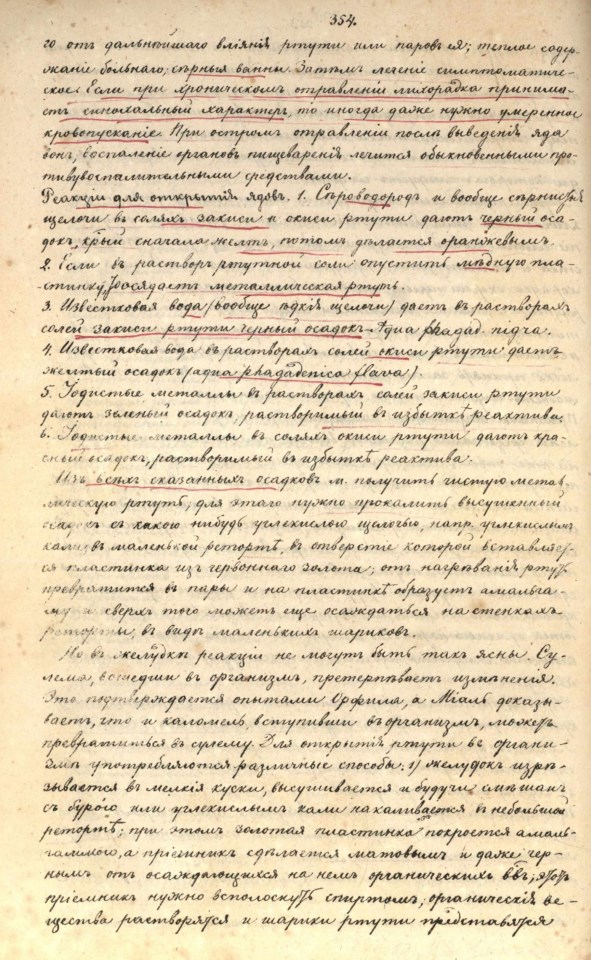 354.
го отъ дальнѣйшаго вліянія ртути или паровъ ея; теплое содер-
жаніе больнаго; сѣрныя ванны. Затѣмъ леченіе симптоматиче-
ское. Если при хроническомъ отравленіи лихорадка принима-
етъ синохальный характеръ, то иногда даже нужно умеренное
кровопусканіе. При остромъ отравленіи послѣ выведенія яда
вонъ, воспаленіе органовъ пищеваренія лечится обыкновенными про-
тивувоспалительными средствами.
Реакціи для открытія ядовъ. 1. Сѣроводородъ и вообще сѣрнистыя
щелочи въ соляхъ закиси и окиси ртути даютъ черный оса-
докъ, кᵒрый сначала желтъ, потомъ дѣлается оранжевымъ.
2. Если въ растворъ ртутной соли опустить мѣдную пла-
стинку, осядаетъ металлическая ртуть.
3. Известковая вода (вообще ѣдкія щелочи) даетъ въ растворахъ
солей закиси ртути черный осадокъ - Aqua phagad. nigra.
4. Известковая вода въ растворахъ солей окиси ртути даетъ
желтый осадокъ (aqua phagadenica flava).
5. Іодистые металлы въ растворахъ солей закиси ртути
даютъ зеленый осадокъ, растворимый въ избыткѣ реактива.
6. Іодистые металлы въ соляхъ окиси ртути даютъ кра-
сный осадокъ, растворимый въ избыткѣ реактива.
Изъ всѣхъ сказанныхъ осадковъ м. получить чистую метал-
лическую ртуть; для этаго нужно прокалить высушенный
осадокъ съ какою нибудь углекислою щелочью, напр. углекислымъ
кали въ маленькой ретортѣ, въ отверстіе которой вставляет-
ся пластинка изъ червоннаго золота; отъ нагрѣванія ртуть
превратится въ пары и на пластинкѣ образуетъ амальга-
му и сверхъ того можетъ еще осаждаться на стенкахъ
реторты, въ видѣ маленькихъ шариковъ.
Но въ желудкѣ реакціи не могутъ быть такъ ясны. Су-
лема, вошедши въ организмъ, претерпѣваетъ измѣненія.
Это подтверждается опытами Орфила, а Міаль доказы-
ваетъ, что и каломель, вступивши въ организмъ, можетъ
превратиться въ сулему. Для открытія ртути въ органи-
змѣ употребляются различные способы: 1) желудокъ изрѣ-
зывается въ мелкія куски, высушивается и будучи смѣшанъ
съ бурою или углекислымъ кали накаливается въ небольшой
ретортѣ; при этомъ золотая пластинка покроется амаль-
гаммою, а пріемникъ сдѣлается матовымъ и даже чер-
нымъ отъ осаждающихся на немъ органическихъ в-въ; этотъ
пріемникъ нужно всполоснуть спиртомъ, органическія ве-
щества растворятся и шарики ртути представятся